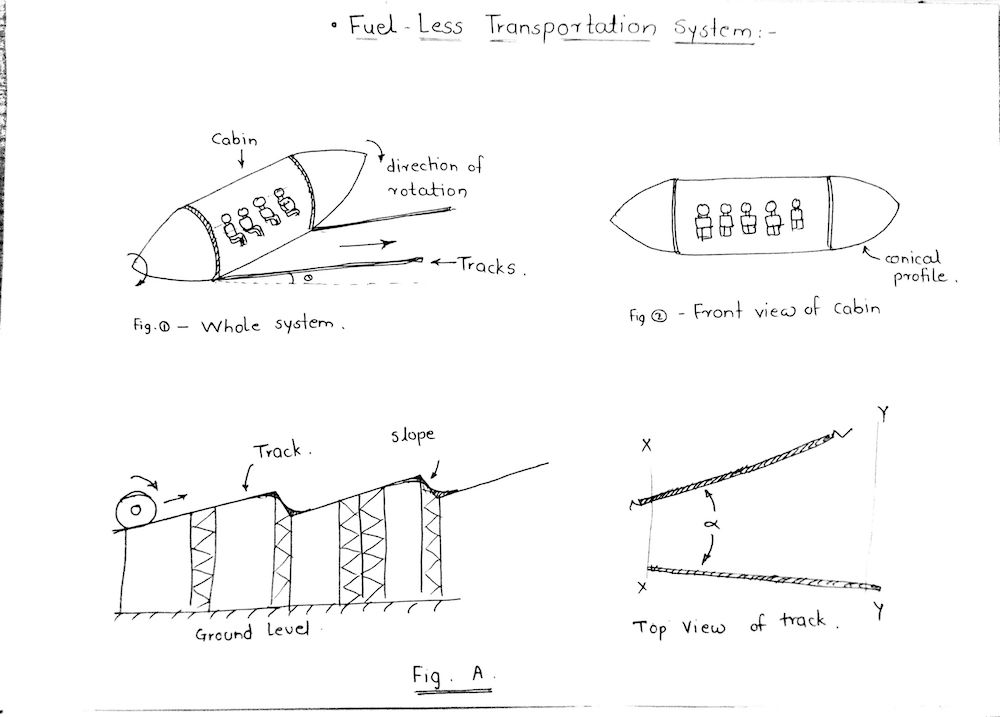 • Fuel-Less Transportation System:-
Cabin
direction of
rotation
Tracks.
θ
Fig.① - Whole system.
conical
profile.
Fig ② - Front view of cabin
Track.
slope
Ground Level.
X
Y
α
X
Y
Top View of track.
Fig. A.